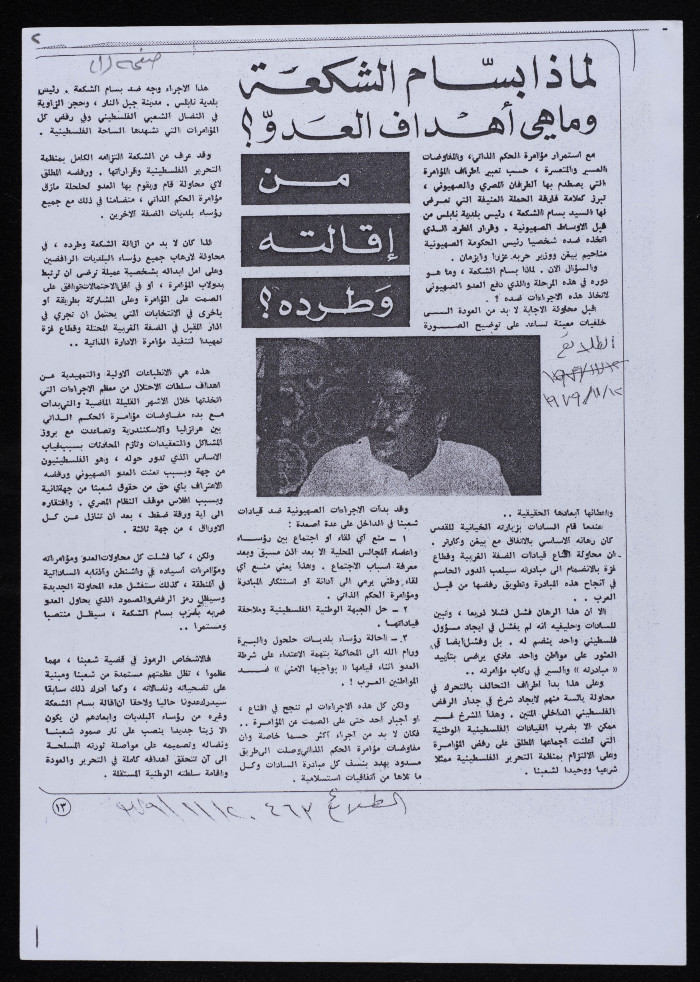 ٢
صفحة (١)
لماذا بسّام الشكعة
وماهي أهداف العدوّ؟
من
إقالته
وَطرده؟
مع استمرار مؤامرة الحكم الذاتي، والمفاوضات
العسر والمتعسرة ، حسب تعبير اطراف المؤامرة
التي يصطدم بها الطرفان المصري والصهيوني ،
تبرز كعلامة فارقة الحملة العنيفة التي تعرض
لها السيد بسام الشكعة ، رئيس بلدية نابلس من
قبل الاوساط الصهيونية . وقرار الطرد الذي
اتخذه ضده شخصيا رئيس الحكومة الصهيونية
مناحيم بيغن ووزير حربه عزرا وايزمان .
والسؤال الان . لماذا بسام الشكعة ، وما هو
دوره في هذه المرحلة والذي دفع العدو الصهيوني
لاتخاذ هذه الاجراءات ضده ؟ .
قبل محاولة الاجابة لا بد من العودة الى
خلفيات معينة تساعد على توضيح الصورة
الطلائع
١٩٧٩/١١/٢٠
واعطائها أبعادها الحقيقية ..
عندما قام السادات بزيارته الخيانية للقدس
كان رهانه الاساسي بالاتفاق مع بيغن وكارتر .
ان محاولة اقناع قيادات الضفة الغربية وقطاع
غزة بالانضمام الى مبادرته سيلعب الدور الحاسم
في انجاح هذه المبادرة وتطويق رفضها من قبل
العرب ..
الا ان هذا الرهان فشل فشلا ذريعا ، وتبين
للسادات وحليفيه انه لم يفشل في ايجاد مسؤول
فلسطيني واحد ينضم له . بل وفشل ايضا في
العثور على مواطن واحد عادي يرضى بتأييد
« مبادرته » والسير في ركاب مؤامرته ..
وعلى هذا بدأ اطراف التحالف بالتحرك في
محاولة يائسة منهم لايجاد شرخ في جدار الرفض
الفلسطيني الداخلي المتين . وهذا الشرخ غير
ممكن الا بضرب القيادات الفلسطينية الوطنية
التي أعلنت اجماعها المطلق على رفض المؤامرة
وعلى الالتزام بمنظمة التحرير الفلسطينية ممثلا
شرعيا ووحيدا لشعبنا .
وقد بدأت الاجراءات الصهيونية ضد قيادات
شعبنا في الداخل على عدة اصعدة :
١ – منع أي لقاء او اجتماع بين رؤساء
واعضاء المجالس المحلية الا بعد اذن مسبق وبعد
معرفة اسباب الاجتماع . وهذا يعني منع أي
لقاء وطني يرمي الى ادانة او استنكار المبادرة
ومؤامرة الحكم الذاتي .
٢ – حل الجبهة الوطنية الفلسطينية وملاحقة
قياداتها .
٣ – احالة رؤساء بلديات حلحول والبيرة
ورام الله الى المحاكمة بتهمة الاعتداء على شرطة
العدو اثناء قيامها « بواجبها الامني » ضد
المواطنين العرب ! .
ولكن كل هذه الاجراءات لم تنجح في اقناع ،
او أجبار احد حتى على الصمت عن المؤامرة ..
فكان لا بد من اجراء أكثر حسما خاصة وان
مفاوضات مؤامرة الحكم الذاتي وصلت الى طريق
مسدود يهدد بنسف كل مبادرة السادات وكل
ما تلاها من أتفاقيات استسلامية .
هذا الاجراء وجه ضد بسام الشكعة . رئيس
بلدية نابلس . مدينة جبل النار ، وحجر الزاوية
في النضال الشعبي الفلسطيني وفي رفض كل
المؤامرات التي تشهدها الساحة الفلسطينية .
وقد عرف عن الشكعة التزامه الكامل بمنظمة
التحرير الفلسطينية وقراراتها . ورفضه المطلق
لاي محاولة قام ويقوم بها العدو لحلحلة مازق
مؤامرة الحكم الذاتي ، متضامنا في ذلك مع جميع
رؤساء بلديات الضفة الآخرين .
لذا كان لا بد من ازالة الشكعة وطرده ، في
محاولة لارهاب جميع رؤساء البلديات الرافضين
وعلى امل ابداله بشخصية عميلة ترضى ان ترتبط
بدولاب المؤامرة ، أو في أقل الاحتمالات توافق على
الصمت على المؤامرة وعلى المشاركة بطريقة او
باخرى في الانتخابات التي يحتمل ان تجري في
اذار المقبل في الضفة الغربية المحتلة وقطاع غزة
تمهيدا لتنفيذ مؤامرة الادارة الذاتية ..
هذه هي الانطباعات الاولية والتمهيدية من
اهداف سلطات الاحتلال من معظم الاجراءات التي
اتخذتها خلال الاشهر القليلة الماضية والتي بدأت
مع بدء مفاوضات مؤامرة الحكم الذاتي
بين هرتزليا والاسكندرية وتصاعدت مع بروز
المشاكل والتعقيدات وتأزم المحادثات بسبب غياب
الاساس الذي تدور حوله ، وهو الفلسطينيون
من جهة وبسبب تعنت العدو الصهيوني ورفضه
الاعتراف باي حق من حقوق شعبنا من جهة ثانية
وبسبب افلاس موقف النظام المصري . وافتقاره
الى أية ورقة ضغط ، بعد ان تنازل عن كل
الاوراق ، من جهة ثالثة .
ولكن ، كما فشلت كل محاولات العدو ومؤامراته
ومؤامرات أسياده في واشنطن وأذنابه الساداتية
في المنطقة ، كذلك ستفشل هذه المحاولة الجديدة
وسيظل رمز الرفض والصمود الذي يحاول العدو
ضربه بضرب بسام الشكعة ، سيظل منتصبا
ومستمرا ..
فالاشخاص الرموز في قضية شعبنا ، مهما
عظموا ، تظل عظمتهم مستمدة من شعبنا ومبنية
على تضحياته ونضالاته ، وكما ادرك ذلك سابقا
سيدرك عدونا حاليا ولاحقا ان اقالة بسام الشكعة
وغيره من رؤساء البلديات وابعادهم لن يكون
الا زيتا جديدا ينصب على نار صمود شعبنا
ونضاله وتصميمه على مواصلة ثورته المسلحة
الى أن تتحقق أهدافه كاملة في التحرير والعودة
واقامة سلطته الوطنية المستقلة .
١٣
الطلائع ٤٦٢ ١٩٧٩/١١/٢٠